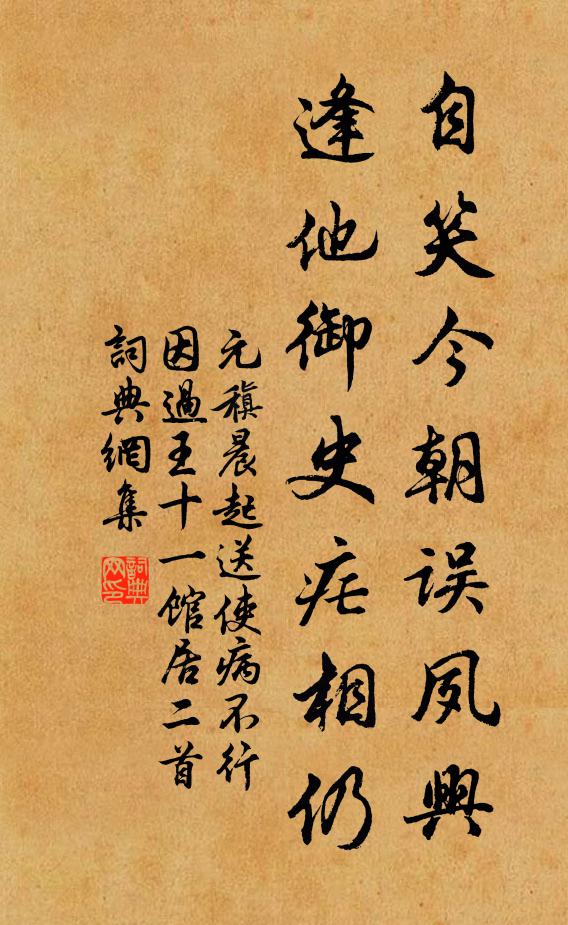 自笑今朝誤夙興
逢他御史瘧相仍
元稹晨起送使病不行
因過王十一館居二首
詞典網集
詞典网印